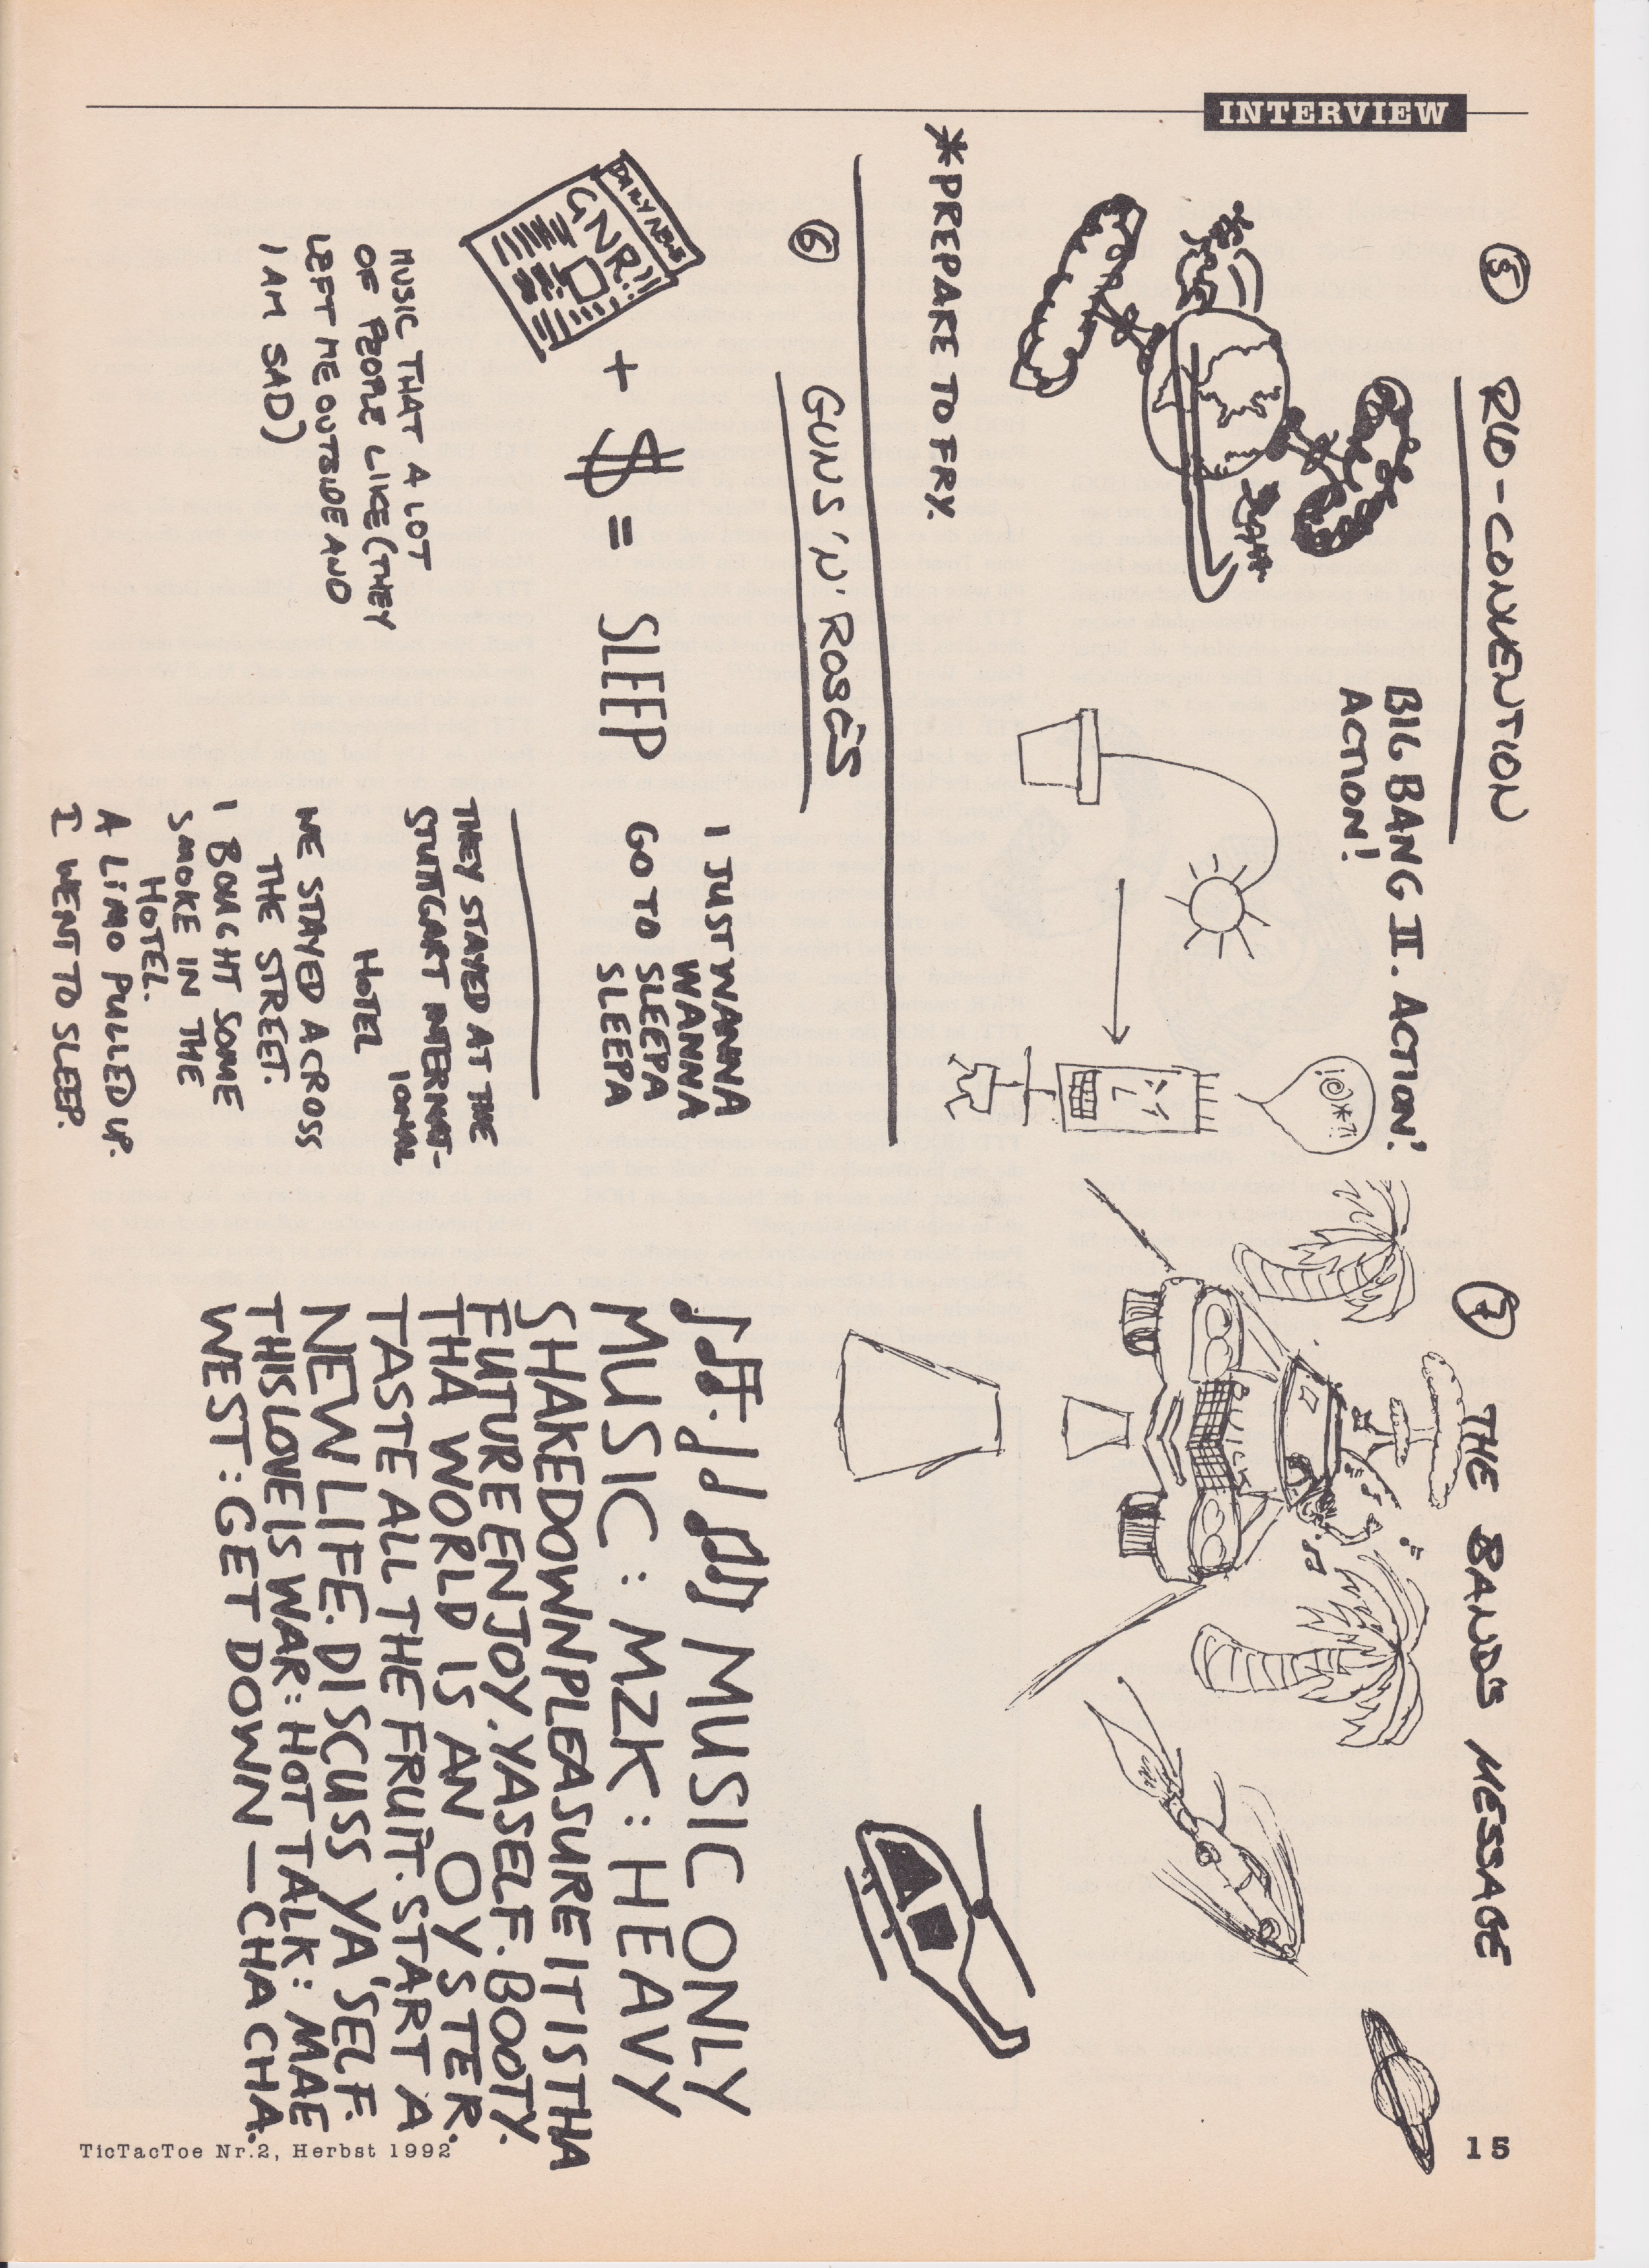 INTERVIEW
5 RIO-CONVENTION
BIG BANG II. ACTION!
ACTION!
!@*?!
*PREPARE TO FRY.
6 GUNS 'N' ROSES
DAILY NEWS
GNR!!
+ $ = SLEEP
MUSIC THAT A LOT
OF PEOPLE LIKE (THEY
LEFT ME OUTSIDE AND
I AM SAD)
I JUST WANNA
WANNA
GO TO SLEEPA
SLEEPA
THEY STAYED AT THE
STUTTGART INTERNAT-
IONAL
HOTEL
WE STAYED ACROSS
THE STREET.
I BOUGHT SOME
SMOKE IN THE
HOTEL.
A LIMO PULLED UP.
I WENT TO SLEEP.
7 THE BAND'S MESSAGE
BUICK
MUSIC ONLY
MUSIC : MZK : HEAVY
SHAKEDOWNPLEASURE IT IS THA
FUTURE ENJOY. YASELF. BOOTY.
THA WORLD IS AN OYSTER.
TASTE ALL THE FRUIT. START A
NEW LIFE. DISCUSS YA'SELF.
THIS LOVE IS WAR: HOT TALK: MAE
WEST: GET DOWN — CHA CHA.
TicTacToe Nr.2, Herbst 1992
15